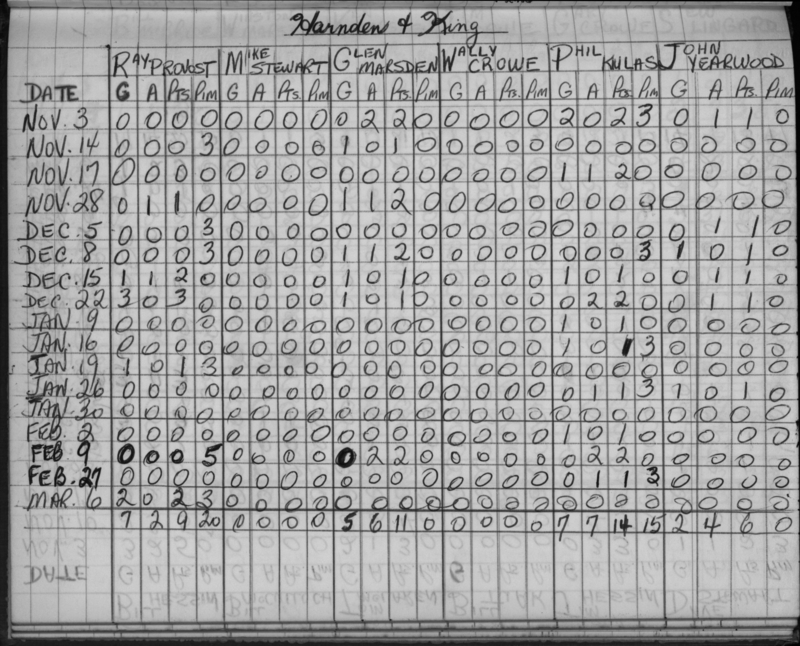 Harnden & King
RAY PROVOST MIKE STEWART GLEN MARSDEN WALLY CROWE PHIL KULAS JOHN YEARWOOD
DATE G A Pts. Pim G A Pts. Pim G A Pts. Pim G A Pts. Pim G A Pts. Pim G A Pts. Pim
NOV. 3 0 0 0 0 0 0 0 0 0 2 2 0 0 0 0 0 2 0 2 3 0 1 1 0
NOV. 14 0 0 0 3 0 0 0 0 1 0 1 0 0 0 0 0 0 0 0 0 0 0 0 0
NOV. 17 0 0 0 0 0 0 0 0 0 0 0 0 0 0 0 0 1 1 2 0 0 0 0 0
NOV. 28 0 1 1 0 0 0 0 0 1 1 2 0 0 0 0 0 0 0 0 0 0 0 0 0
DEC. 5 0 0 0 3 0 0 0 0 0 0 0 0 0 0 0 0 0 0 0 0 0 1 1 0
DEC. 8 0 0 0 3 0 0 0 0 1 1 2 0 0 0 0 0 0 0 0 3 1 0 1 0
DEC. 15 1 1 2 0 0 0 0 0 1 0 1 0 0 0 0 0 1 0 1 0 0 1 1 0
DEC. 22 3 0 3 0 0 0 0 0 1 0 1 0 0 0 0 0 0 2 2 0 0 1 1 0
JAN. 9 0 0 0 0 0 0 0 0 0 0 0 0 0 0 0 0 1 0 1 0 0 0 0 0
JAN. 16 0 0 0 0 0 0 0 0 0 0 0 0 0 0 0 0 1 0 1 3 0 0 0 0
JAN. 19 1 0 1 3 0 0 0 0 0 0 0 0 0 0 0 0 0 0 0 0 0 0 0 0
JAN. 26 0 0 0 0 0 0 0 0 0 0 0 0 0 0 0 0 0 1 1 3 1 0 1 0
JAN. 30 0 0 0 0 0 0 0 0 0 0 0 0 0 0 0 0 0 0 0 0 0 0 0 0
FEB. 2 0 0 0 0 0 0 0 0 0 0 0 0 0 0 0 0 1 0 1 0 0 0 0 0
FEB 9 0 0 0 5 0 0 0 0 0 2 2 0 0 0 0 0 0 2 2 0 0 0 0 0
FEB. 27 0 0 0 0 0 0 0 0 0 0 0 0 0 0 0 0 0 1 1 3 0 0 0 0
MAR. 6 2 0 2 3 0 0 0 0 0 0 0 0 0 0 0 0 0 0 0 0 0 0 0 0
7 2 9 20 0 0 0 0 5 6 11 0 0 0 0 0 7 7 14 15 2 4 6 0